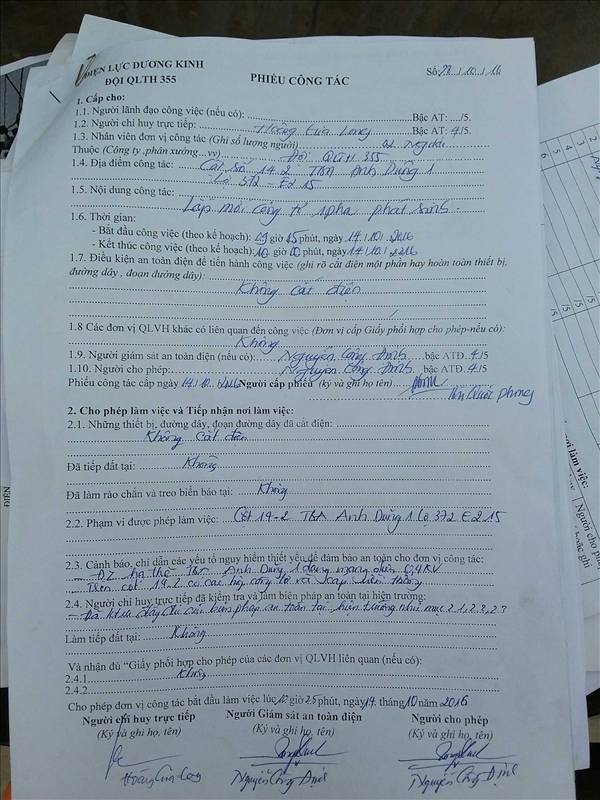 ĐIỆN LỰC DƯƠNG KINH
ĐỘI QLTH 355
PHIẾU CÔNG TÁC
Số 28../10../16
1. Cấp cho:
1.1. Người lãnh đạo công việc (nếu có): Bậc AT: .../5.
1.2. Người chỉ huy trực tiếp: Hoàng Gia Long Bậc AT: 4/5.
1.3. Nhân viên đơn vị công tác (Ghi số lượng người) 02 Người
Thuộc (Công ty ,phân xưởng...vv) Đội QLTH 355
1.4. Địa điểm công tác: Cột số 19-2 TBA Anh Dũng 1
Lộ 372 - E2.15
1.5. Nội dung công tác:
Lắp mới công tơ 1pha phát sinh.
1.6. Thời gian:
- Bắt đầu công việc (theo kế hoạch): giờ 15 phút, ngày 14/10/2016
- Kết thúc công việc (theo kế hoạch): giờ 00 phút, ngày 14/10/2016
1.7. Điều kiện an toàn điện để tiến hành công việc (ghi rõ cắt điện một phần hay hoàn toàn thiết bị,
đường dây , đoạn đường dây):
Không cắt điện
1.8 Các đơn vị QLVH khác có liên quan đến công việc (Đơn vị cấp Giấy phối hợp cho phép-nếu có):
Không
1.9. Người giám sát an toàn điện (nếu có): Nguyễn Công Định bậc ATĐ. 4/5
1.10. Người cho phép: Nguyễn Công Định bậc ATĐ. 4/5
Phiếu công tác cấp ngày 14/10/2016 Người cấp phiếu (ký và ghi họ tên)
Quốc Phong
2. Cho phép làm việc và Tiếp nhận nơi làm việc:
2.1. Những thiết bị, đường dây, đoạn đường dây đã cắt điện:
Không cắt điện
Đã tiếp đất tại: Không
Đã làm rào chắn và treo biển báo tại: Không
2.2. Phạm vi được phép làm việc: Cột 19-2 TBA Anh Dũng 1 Lộ 372 E2.15
2.3. Cảnh báo, chỉ dẫn các yếu tố nguy hiểm thiết yếu để đảm bảo an toàn cho đơn vị công tác:
- ĐZ hạ thế TBA Anh Dũng 1 đang mang điện 0,4KV
- Trên cột 19-2 có các hộp công tơ và cáp viễn thông
2.4. Người chỉ huy trực tiếp đã kiểm tra và làm biện pháp an toàn tại hiện trường:
- Đã đầy đủ các biện pháp an toàn tại hiện trường như mục 2.1, 2.2, 2.3
Làm tiếp đất tại: Không
Và nhận đủ "Giấy phối hợp cho phép của các đơn vị QLVH liên quan (nếu có):
2.4.1. Không
2.4.2.
Cho phép đơn vị công tác bắt đầu làm việc lúc giờ 25 phút, ngày 14. tháng 10 năm 2016
Người chỉ huy trực tiếp Người Giám sát an toàn điện Người cho phép
(Ký và ghi họ, tên) (Ký và ghi họ, tên) (Ký và ghi họ, tên)
Hoàng Gia Long Nguyễn Công Định Nguyễn Công Định